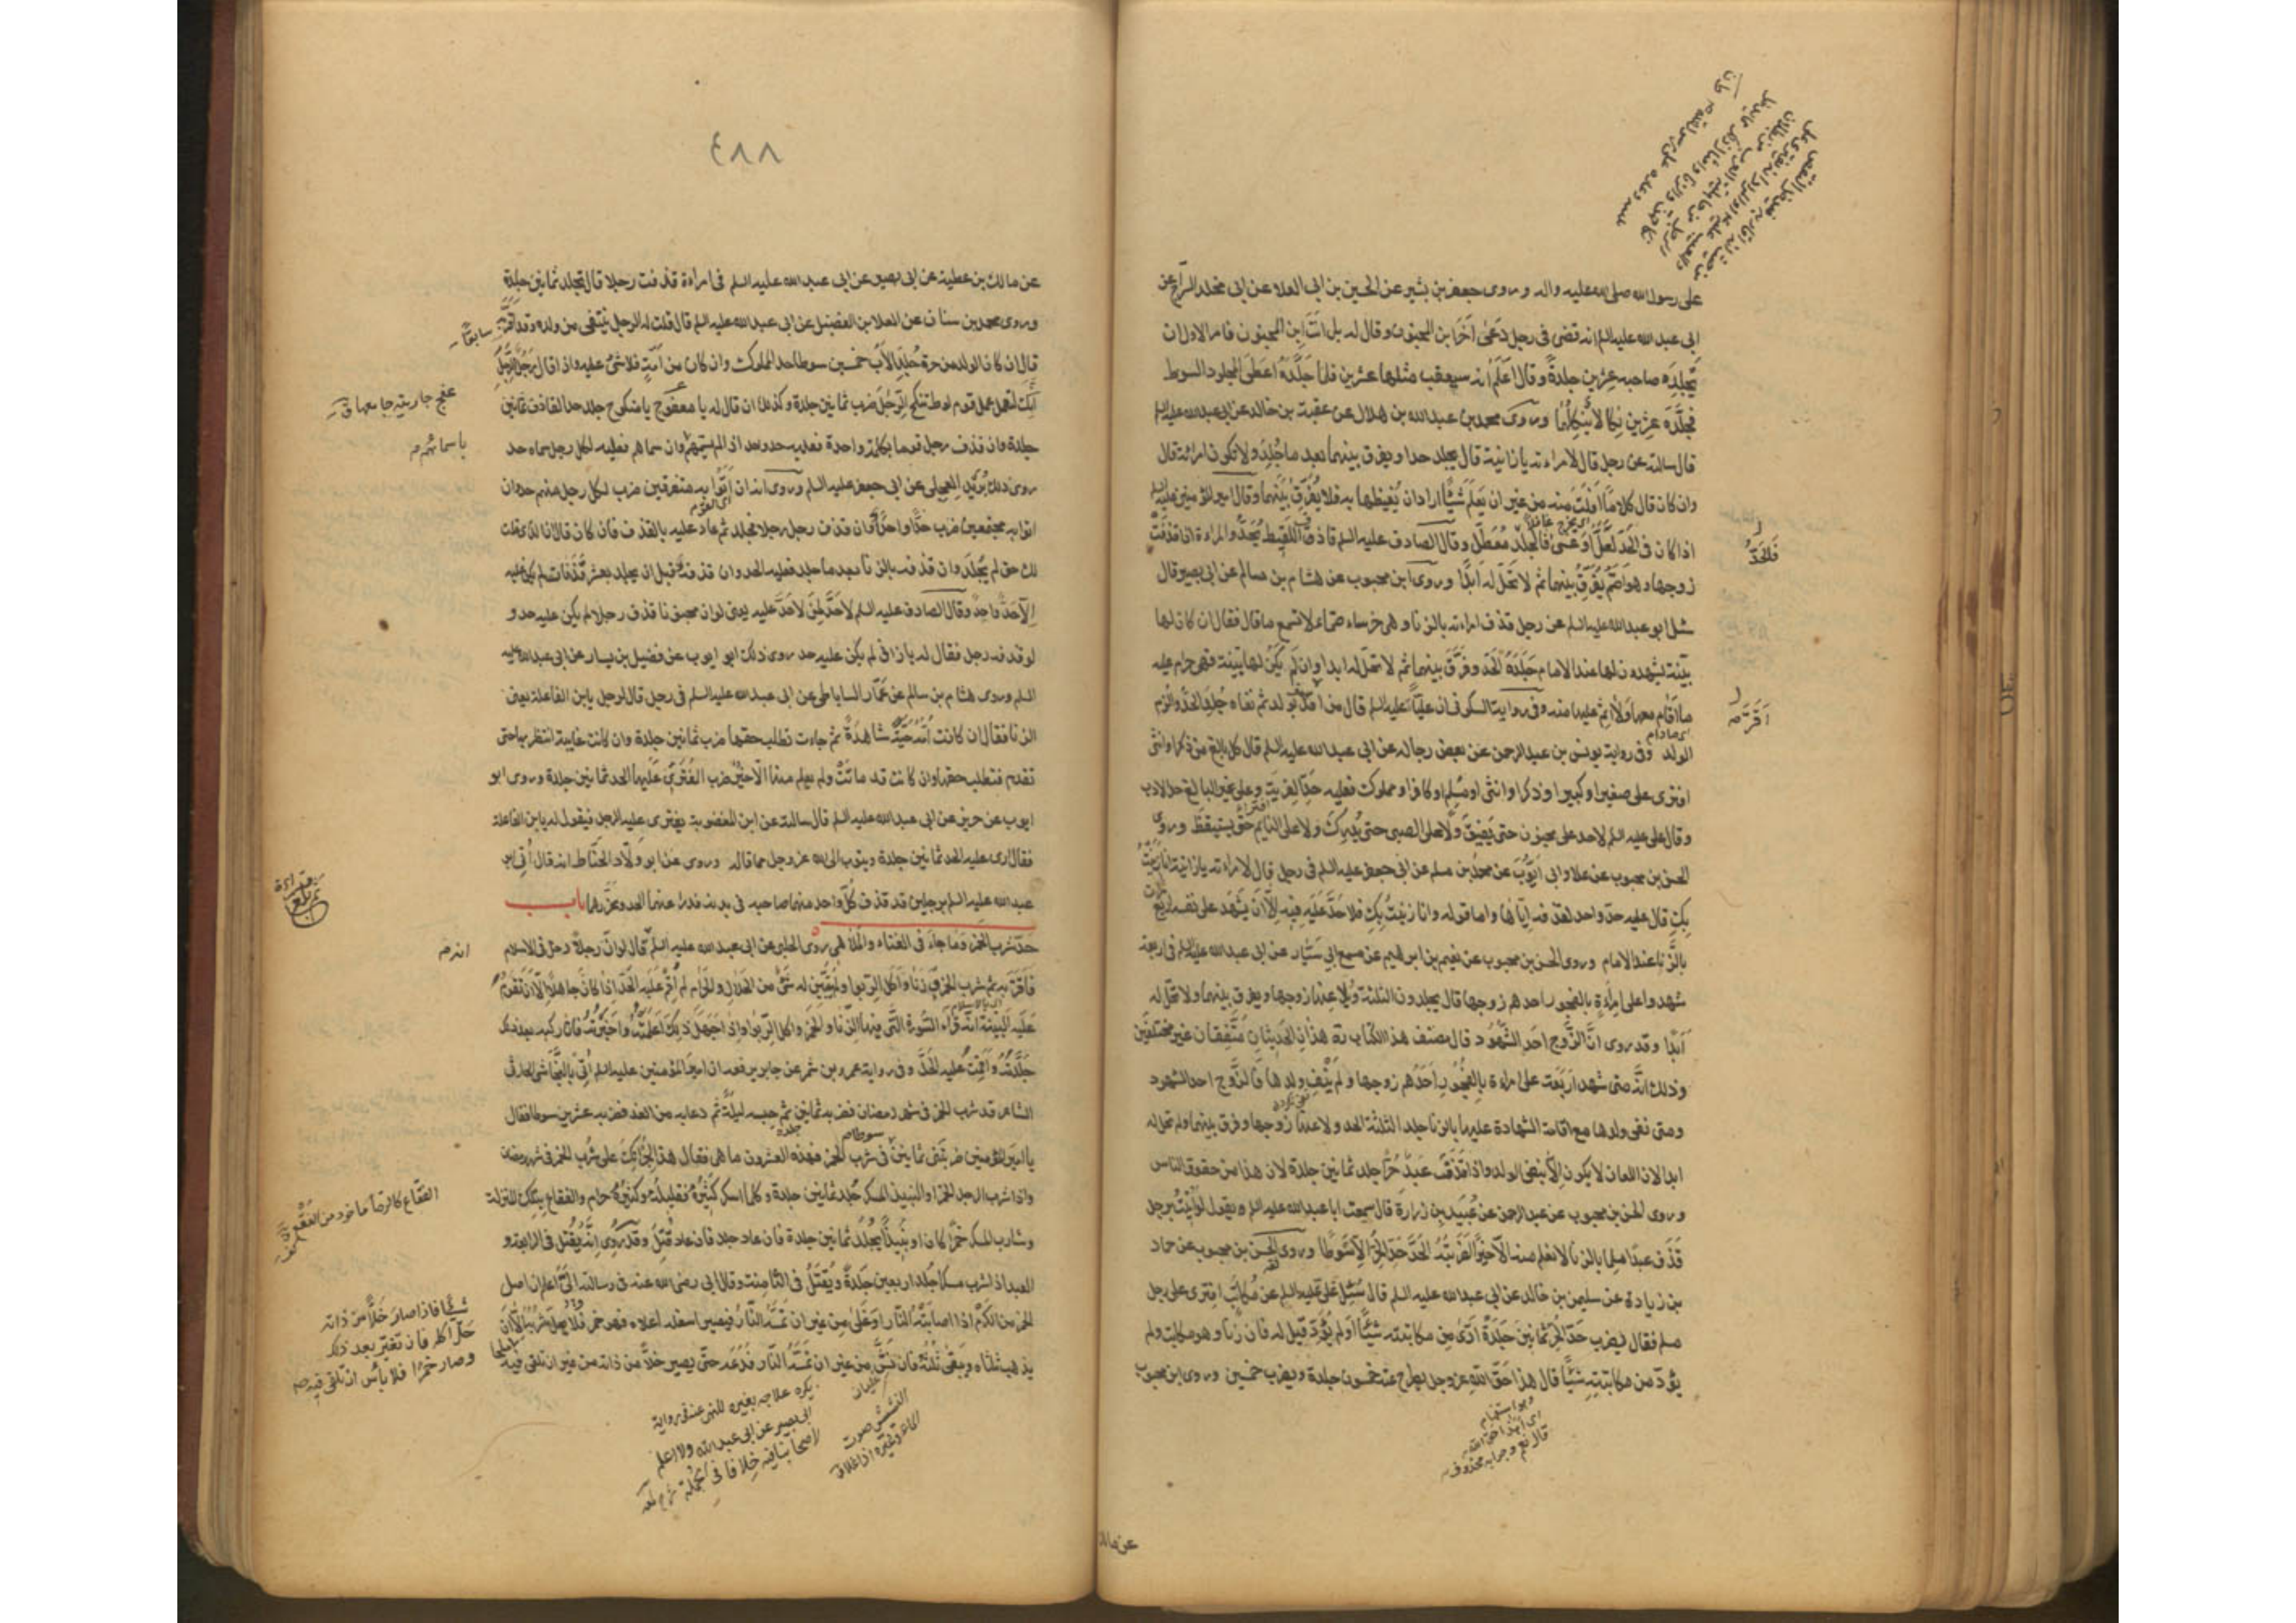 على رسول الله صلى الله عليه واله وروى جعفر بن بشير عن الحسين بن ابى العلا عن ابى مخلد السراج عن
ابى عبد الله عليه السلم انه قضى فى رجل دعى آخر ابن المجنون وقال له بل انت ابن المجنون فامر الاول ان
يجلد صاحبه عشرين جلدة وقال اعلم انه سيعقب مثلها عشرين فلما جلده اعطى المجلود السوط
فجلده عشرين نكالا ينكلهما وروى محمد بن عبد الله بن هلال عن عقبة بن خالد عن ابى عبد الله عليه السلم
قال سالته عن رجل قال لامراته يا زانية قال يجلد حدا ويفرق بينهما بعد ما جلد ولا تكون امراته قال
وان كان قال كلاما افلت منه من غير ان يعلم شيئا اراد ان يغيظها به فلا يفرق بينهما وقال امير المؤمنين عليه السلم
اذا كان فى الحد لعل او عسى فالحد معطل وقال الصادف عليه السلم قاذف اللقيط يحد والمراة اذا قذفت
زوجها وهو اصم يفرق بينهما ثم لا تحل له ابدا وروى ابن محبوب عن هشام بن سالم عن ابى بصير قال
سئل ابو عبد الله عليه السلم عن رجل قذف امراته بالزنا وهى خرساء صماء لا تسمع ما قال فقال ان كان لها
بينة يشهدون لها عند الامام جلده الحد وفرق بينهما ثم لا تحل له ابدا وان لم يكن لها بينة فهى حرام عليه
ما اقام معها ولا اثم عليها منه وفى رواية السكونى ان عليا عليه السلم قال من اقر بولد ثم نفاه جلد الحد والزم
الولد وفى رواية يونس بن عبد الرحمن عن بعض رجاله عن ابى عبد الله عليه السلم قال كل بالغ من ذكر او انثى
افترى على صغير او كبير او ذكر او انثى او مسلم او كافر او مملوك فعليه حد الفرية وعلى غير البالغ حد الادب
وقال على عليه السلم لا حد على مجنون حتى يفيق ولا على الصبى حتى يدرك ولا على النايم حتى يستيقظ وروى
الحسن بن محبوب عن علا وابى ايوب عن محمد بن مسلم عن ابى جعفر عليه السلم فى رجل قال لامراته يا زانية انا زنيت
بك قال عليه حد واحد لقذفه اياها واما قوله وانا زنيت بك فلا حد عليه فيه الا ان يشهد على نفسه اربع
بالزنا عند الامام وروى الحسن بن محبوب عن نعيم بن ابرهيم عن مسمع ابى سيار عن ابى عبد الله عليه السلم فى اربعة
شهدوا على امراة بالفجور احدهم زوجها قال يجلدون الثلثة ويلاعنها زوجها ويفرق بينهما ولا تحل له
ابدا وقد روى ان الزوج احد الشهود قال مصنف هذا الكتاب ره هذان الحديثان متفقان غير مختلفين
وذلك انه متى شهد اربعة على امراة بالفجور احدهم زوجها ولم ينف ولدها فالزوج احد الشهود
ومتى نفى ولدها مع اقامة الشهادة عليها بالزنا جلد الثلثة الحد ولاعنها زوجها وفرق بينهما ولم تحل له
ابدا لان اللعان لا يكون الا بنفى الولد واذا قذف عبد حرا جلد ثمانين جلدة لان هذا من حقوق الناس
وروى الحسن بن محبوب عن عبد الرحمن عن عبيد بن زرارة قال سمعت ابا عبد الله عليه السلم ويقول لو اتيت برجل
قذف عبدا مسلما بالزنا لا نعلم منه الا خيرا لضربته الحد حد الحر الا سوطا وروى الحسن بن محبوب عن حماد
بن زيادة عن سليمن بن خالد عن ابى عبد الله عليه السلم قال سئل على عليه السلم عن مكاتب افترى على رجل
مسلم فقال يضرب حد الحر ثمانين جلدة ادى من مكاتبته شيئا او لم يؤد قيل له فان زنا وهو مكاتب ولم
يؤد من مكاتبته شيئا قال هذا حق الله عز وجل يطرح عنه خمسون جلدة ويضرب خمسين وروى ابن محبوب
فالحد
اقر به
قال نعم وجوابه محذوف
عن مالك
٤٨٨
عن مالك بن عطية عن ابى بصير عن ابى عبد الله عليه السلم فى امراة قذفت رجلا قال تجلد ثمانين جلدة
وروى محمد بن سنان عن العلا بن الفضيل عن ابى عبد الله عليه السلم قال قلت له الرجل ينتفى من ولده وقد اقر به
قال ان كان الولد من حرة جلد الاب خمسين سوطا حد المملوك وان كان من امة فلا شئ عليه واذا قال رجل لرجل
انك لتعمل عمل قوم لوط تنكح الرجال ضرب ثمانين جلدة وكذلك ان قال له يا معفوج يا منكوح جلد حد القاذف ثمانين
جلدة وان قذف رجل قوما بكلمة واحدة فعليه حد واحد اذا لم يسمهم وان سماهم فعليه لكل رجل سماه حد
روى ذلك بريد العجلى عن ابى جعفر عليه السلم وروى انه ان اتوا به متفرقين ضرب لكل رجل منهم حدا وان
اتوا به مجتمعين ضرب حدا واحدا وان قذف رجل رجلا فجلد ثم عاد عليه بالقذف فان كان قال ان الذى قلت
لك حق لم يجلد وان قذفه بالزنا بعد ما جلد فعليه الحد وان قذفه قبل ان يجلد بعشر قذفات لم يكن عليه
الا حد واحد وقال الصادف عليه السلم لا حد لمن لا حد عليه يعنى لو ان مجنونا قذف رجلا لم يكن عليه حد و
لو قذفه رجل فقال له يا زانى لم يكن عليه حد روى ذلك ابو ايوب عن فضيل بن يسار عن ابى عبد الله عليه
السلم وروى هشام بن سالم عن عمار الساباطى عن ابى عبد الله عليه السلم فى رجل قال لرجل يا بن الفاعلة يعنى
الزنا فقال ان كانت امه حية شاهدة ثم جاءت تطلب حقها ضرب ثمانين جلدة وان كانت غايبة انتظر بها حتى
تقدم فتطلب حقها وان كانت قد ماتت ولم يعلم منها الا خير ضرب المفترى عليها الحد ثمانين جلدة وروى ابو
ايوب عن حريز عن ابى عبد الله عليه السلم قال سالته عن ابن المغصوبة يفترى عليه الرجل فيقول له يا بن الفاعلة
فقال ارى عليه الحد ثمانين جلدة ويتوب الى الله عز وجل مما قاله وروى عن ابو ولاد الحناط انه قال اتى ابو
عبد الله عليه السلم برجلين قد قذف كل واحد منهما صاحبه فى بدنه فدرء عنهما الحد وعزرهما باب
حد شرب الخمر وما جاء فى الغناء والملاهى روى الحلبى عن ابى عبد الله عليه السلم قال لو ان رجلا دخل فى الاسلام
فاقر به ثم شرب الخمر وزنا واكل الربوا ولم يتبين له شئ من الحلال والحرام لم اقم عليه الحد اذا كان جاهلا الا ان تقوم
عليه البينة انه قراء السورة التى فيها الزنا والخمر واكل الربوا واذا جهل ذلك اعلمته واخبرته فان ركبه بعد ذلك
جلدته واقمت عليه الحد وفى رواية عمرو بن شمر عن جابر يرفعه ان امير المؤمنين عليه السلم اتى بالنجاشى الحارثى
الشاعر قد شرب الخمر فى شهر رمضان فضربه ثمانين ثم حبسه ليلة ثم دعا به من الغد فضربه عشرين سوطا فقال
يا امير المؤمنين ضربتنى ثمانين فى شرب الخمر فهذه العشرون ما هى فقال هذا لجرأتك على شرب الخمر فى شهر رمضان
واذا شرب الرجل الخمر او النبيذ المسكر جلد ثمانين جلدة وكلما اسكر كثيره فقليله وكثيره حرام والفقاع بتلك المنزلة
وشارب المسكر خمرا كان او نبيذا يجلد ثمانين جلدة فان عاد جلد فان عاد قتل وقد روى انه يقتل فى الرابعة و
العبد اذا شرب مسكرا جلد اربعين جلدة ويقتل فى الثامنة وقال ابى رضى الله عنه فى رسالته الى اعلم ان اصل
الخمر من الكرم اذا اصابته النار او غلى من غير ان تمسه النار فيصير اسفله اعلاه فهو خمر فلا يحل شربه الا ان
يذهب ثلثاه ويبقى ثلثه فان نش من غير ان تمسه النار فدعه حتى يصير خلا من ذاته من غير ان تلقى فيه
سابقا
عفج جاريته جامعها ق
باسمائهم
انه
الفقاع كالرمان ماخود من
شيئا فاذا صار خلا من ذاته
حل اكله فان تغير بعد ذلك
وصار خمرا فلا باس ان تلقى فيه
يكره علاجه بغيره للنهى عنه فى رواية
ابى بصير عن ابى عبد الله ولا اعلم
لاصحابنا فيه خلافا فى الجملة
النشيش صوت
الماء وغيره اذا غلا